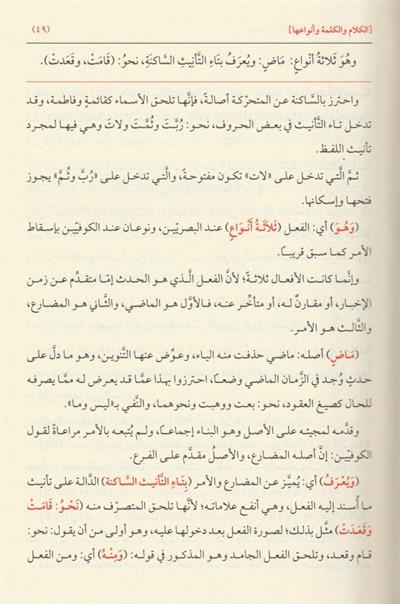 [الكلام والكلمة وأنواعها]
(٤٩)
وهُوَ ثَلاثةُ أنْواعٍ: مَاضٍ: ويُعرَفُ بتَاءِ التَّأنيثِ السَّاكنَةِ، نحوُ: (قَامَتْ، وقَعدَتْ).
واحترز بالسَّاكنة عن المتحرّكة أصالةً، فإنَّها تلحق الأسماء كقائمةٍ وفاطمة، وقد
تدخل تاء التَّأنيث في بعض الحروف، نحو: رُبَّتَ وثُمَّتَ ولاتَ وهي فيها لمجرد
تأنيث اللفظ.
ثمَّ الَّتي تدخل على «لات» تكون مفتوحةً، والَّتي تدخل على «رُبَّ وثُمَّ» يجوز
فتحها وإسكانها.
(وَهُوَ) أي: الفعل (ثَلَاثَةُ أَنْوَاعٍ) عند البصريّين، ونوعان عند الكوفيّين بإسقاط
الأمر كما سبق قريبًا.
وإنَّما كانت الأفعال ثلاثةً؛ لأنَّ الفعل الَّذي هو الحدث إمَّا متقدّم عن زمن
الإخبار، أو مقارنٌ له، أو متأخّر عنه، فالأوَّل هو الماضي، والثَّاني هو المضارع،
والثَّالث هو الأمر.
(مَاضٍ) أصله: ماضي حذفت منه الياء، وعوّض عنها التَّنوين، وهو ما دلَّ على
حدثٍ وُجد في الزَّمان الماضي وضعًا، احترزوا بهذا عمَّا قد يعرض له ممَّا يصرفه
للحال كصيغ العقود، نحو: بعت ووهبت ونحوهما، والنَّفي بـ«ليس وما».
وقدَّمه لمجيئه على الأصل وهو البناء إجماعًا، ولم يُتبعه بالأمر مراعاةً لقول
الكوفيّين: إنَّ أصله المضارع، والأصلُ مقدَّم على الفرع.
(وَيُعْرَفُ) أي: يُميَّز عن المضارع والأمر (بِتَاءِ التَّأنيث السَّاكنة) الدَّالة على تأنيث
ما أُسند إليه الفعل، وهي أنفع علاماته؛ لأنَّها تلحق المتصرّف منه (نَحْوُ: قَامَتْ
وَقَعَدَتْ) مثَّل بذلك؛ لصورة الفعل بعد دخولها عليه، وهو أولى من أن يقول: نحو:
قام وقعد، وتلحق الفعل الجامد وهو المذكور في قوله: (وَمِنْهُ) أي: ومن الفعل